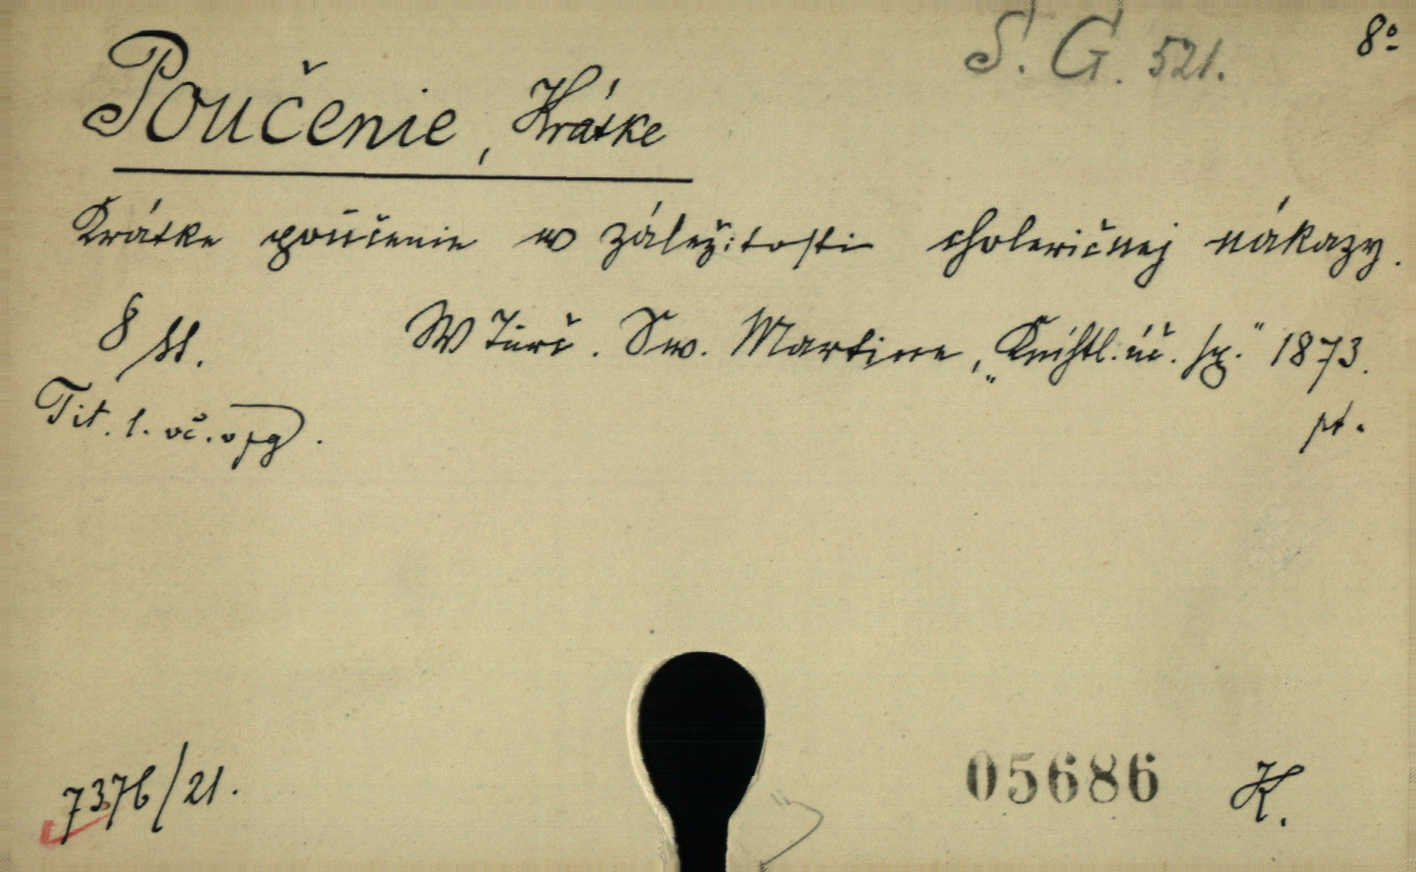 S. G. 521. 8º
Poučenie, Krátke
Krátke poučenie w záležitosti cholericnej nákazy.
8 ss. W Turč. Sw. Martine, „Knihtl. úč. sp." 1873.
Tit. l. vč. v pg.
pt.
7376/21.
05686 K.